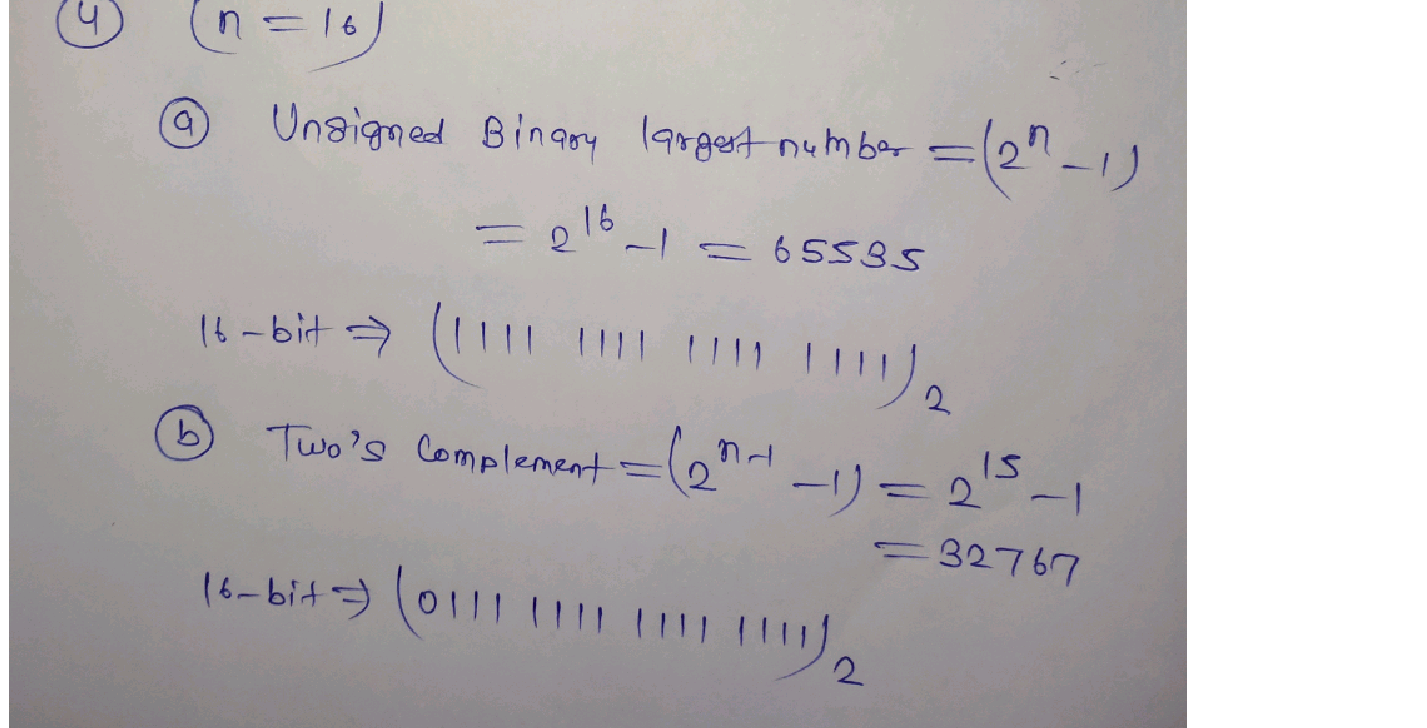 ④ (n = 16)
ⓐ Unsigned Binary largest number = (2ⁿ - 1)
= 2¹⁶ - 1 = 65535
16-bit ⇒ (1111 1111 1111 1111)₂
ⓑ Two's Complement = (2ⁿ⁻¹ - 1) = 2¹⁵ - 1
= 32767
16-bit ⇒ (0111 1111 1111 1111)₂